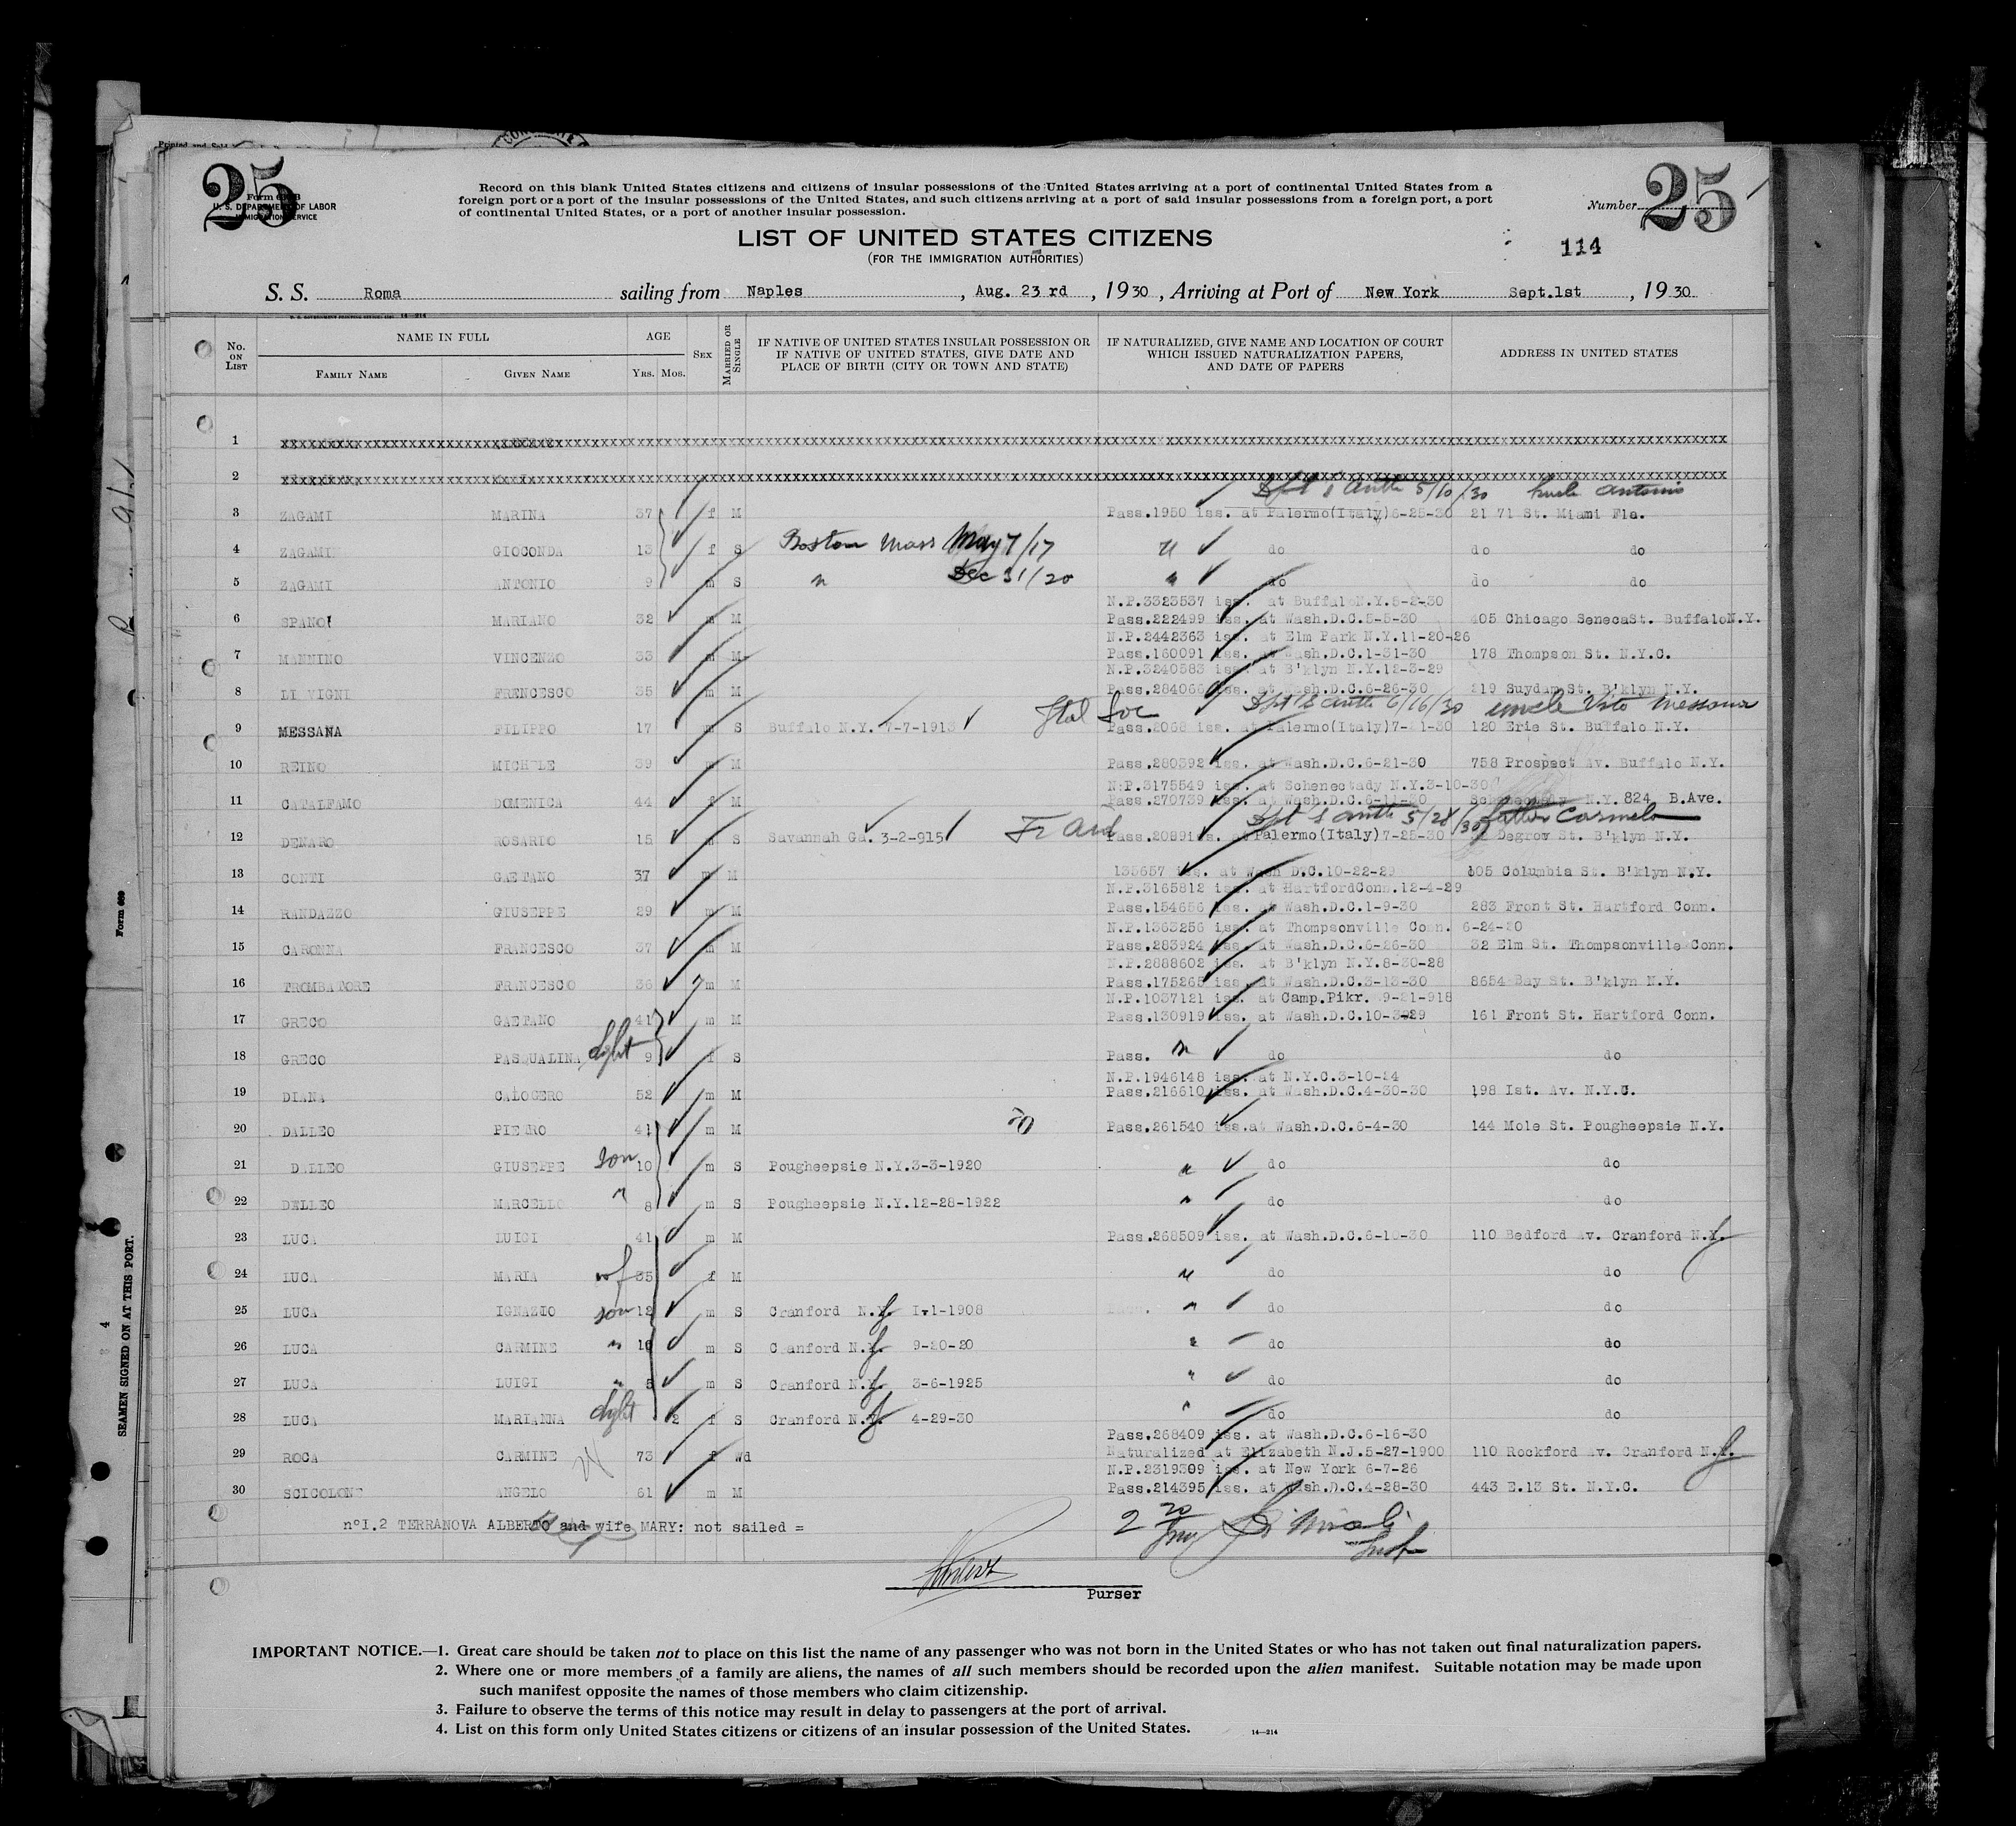 25
Form 630B
U. S. DEPARTMENT OF LABOR
IMMIGRATION SERVICE
Record on this blank United States citizens and citizens of insular possessions of the United States arriving at a port of continental United States from a
foreign port or a port of the insular possessions of the United States, and such citizens arriving at a port of said insular possessions from a foreign port, a port
of continental United States, or a port of another insular possession.
Number 25
LIST OF UNITED STATES CITIZENS
(FOR THE IMMIGRATION AUTHORITIES)
114
S. S. Roma sailing from Naples, Aug. 23 rd, 1930, Arriving at Port of New York Sept.1st, 1930
No. ON LIST
NAME IN FULL
FAMILY NAME GIVEN NAME
AGE
YRS. MOS.
SEX
MARRIED OR SINGLE
IF NATIVE OF UNITED STATES INSULAR POSSESSION OR
IF NATIVE OF UNITED STATES, GIVE DATE AND
PLACE OF BIRTH (CITY OR TOWN AND STATE)
IF NATURALIZED, GIVE NAME AND LOCATION OF COURT
WHICH ISSUED NATURALIZATION PAPERS,
AND DATE OF PAPERS
ADDRESS IN UNITED STATES
1
2
5/10/30 Antonio
3 ZAGAMI MARINA 37 f M Pass.1950 iss. at Palermo(Italy)6-25-30 21 71 St. Miami Fla.
4 ZAGAMI GIOCONDA 13 f S Boston Mass May 7/17 " do do do
5 ZAGAMI ANTONIO 9 m S " Dec 31/20 " do do do
N.P.3323537 iss. at Buffalo N.Y.5-2-30
6 SPANO MARIANO 32 m M Pass.222499 iss. at Wash.D.C.5-5-30 405 Chicago SenecaSt. BuffaloN.Y.
N.P.2442363 iss. at Elm Park N.Y.11-20-26
7 MANNINO VINCENZO 33 m M Pass.160091 iss. at Wash.D.C.1-31-30 178 Thompson St. N.Y.C.
N.P.3240583 iss. at B'klyn N.Y.12-3-29
8 LI VIGNI FRENCESCO 35 m M Pass.284066 iss. at Wash.D.C.6-26-30 219 Suydam St. B'klyn N.Y.
Ital Soc 6/16/30 uncle Vito Messana
9 MESSANA FILIPPO 17 m S Buffalo N.Y. 7-7-1913 Pass.2068 iss. at Palermo(Italy)7-21-30 120 Erie St. Buffalo N.Y.
10 REINO MICHELE 39 m M Pass.280392 iss. at Wash.D.C.6-21-30 758 Prospect Av. Buffalo N.Y.
N.P.3175549 iss. at Schenectady N.Y.3-10-30
11 CATALFAMO DOMENICA 44 f M Pass.270739 iss. at Wash.D.C.6-11-30 Schenectady N.Y. 824 B.Ave.
5/28/30 father Carmelo
12 DENARO ROSARIO 15 m S Savannah Ga. 3-2-915 Pass.2089iss. at Palermo(Italy)7-25-30 Degrow St. B'klyn N.Y.
13 CONTI GAETANO 37 m M 135657 iss. at Wash D.C.10-22-29 105 Columbia St. B'klyn N.Y.
N.P.3165812 iss. at HartfordConn.12-4-29
14 RANDAZZO GIUSEPPE 29 m M Pass.154656 iss. at Wash.D.C.1-9-30 283 Front St. Hartford Conn.
N.P.1363256 iss. at Thompsonville Conn. 6-24-20
15 CARONNA FRANCESCO 37 m M Pass.283924 iss. at Wash.D.C.6-26-30 32 Elm St. Thompsonville Conn.
N.P.2888602 iss. at B'klyn N.Y.8-30-28
16 TROMBATORE FRANCESCO 36 m M Pass.175265 iss. at Wash.D.C.3-13-30 8654 Bay St. B'klyn N.Y.
N.P.1037121 iss. at Camp.Pikr. 9-21-918
17 GRECO GAETANO 41 m M Pass.130919 iss. at Wash.D.C.10-3-29 161 Front St. Hartford Conn.
18 GRECO PASQUALINA 9 f S Pass. " do do
N.P.1946148 iss. at N.Y.C.3-10-24
19 DIANA CALOGERO 52 m M Pass.216610 iss. at Wash.D.C.4-30-30 198 Ist. Av. N.Y.C.
20 DALLEO PIETRO 41 m M Pass.261540 iss.at Wash.D.C.6-4-30 144 Mole St. Pougheepsie N.Y.
21 DALLEO GIUSEPPE son 10 m S Pougheepsie N.Y.3-3-1920 " do do
22 DELLEO MARCELLO " 8 m S Pougheepsie N.Y.12-28-1922 " do do
23 LUCA LUIGI 41 m M Pass.268509 iss. at Wash.D.C.6-10-30 110 Bedford Av. Cranford N.J.
24 LUCA MARIA wf 35 f M " do do
25 LUCA IGNAZIO son 12 m S Cranford N.J. I-1-1908 " do do
26 LUCA CARMINE " 10 m S Cranford N.J. 9-20-20 " do do
27 LUCA LUIGI " 5 m S Cranford N.J. 3-6-1925 " do do
28 LUCA MARIANNA 2 f S Cranford N.J. 4-29-30 " do do
Pass.268409 iss. at Wash.D.C.6-16-30
29 ROCA CARMINE 73 f Wd Naturalized at Elizabeth N.J.5-27-1900 110 Rockford Av. Cranford N.J.
N.P.2319309 iss. at New York 6-7-26
30 SCICOLONE ANGELO 61 m M Pass.214395 iss. at Wash.D.C.4-28-30 443 E.13 St. N.Y.C.
n°I.2 TERRANOVA ALBERTO and wife MARY: not sailed =
Purser
IMPORTANT NOTICE.—1. Great care should be taken not to place on this list the name of any passenger who was not born in the United States or who has not taken out final naturalization papers.
2. Where one or more members of a family are aliens, the names of all such members should be recorded upon the alien manifest. Suitable notation may be made upon
such manifest opposite the names of those members who claim citizenship.
3. Failure to observe the terms of this notice may result in delay to passengers at the port of arrival.
4. List on this form only United States citizens or citizens of an insular possession of the United States.
14—214
Form 609
SEAMEN SIGNED ON AT THIS PORT.